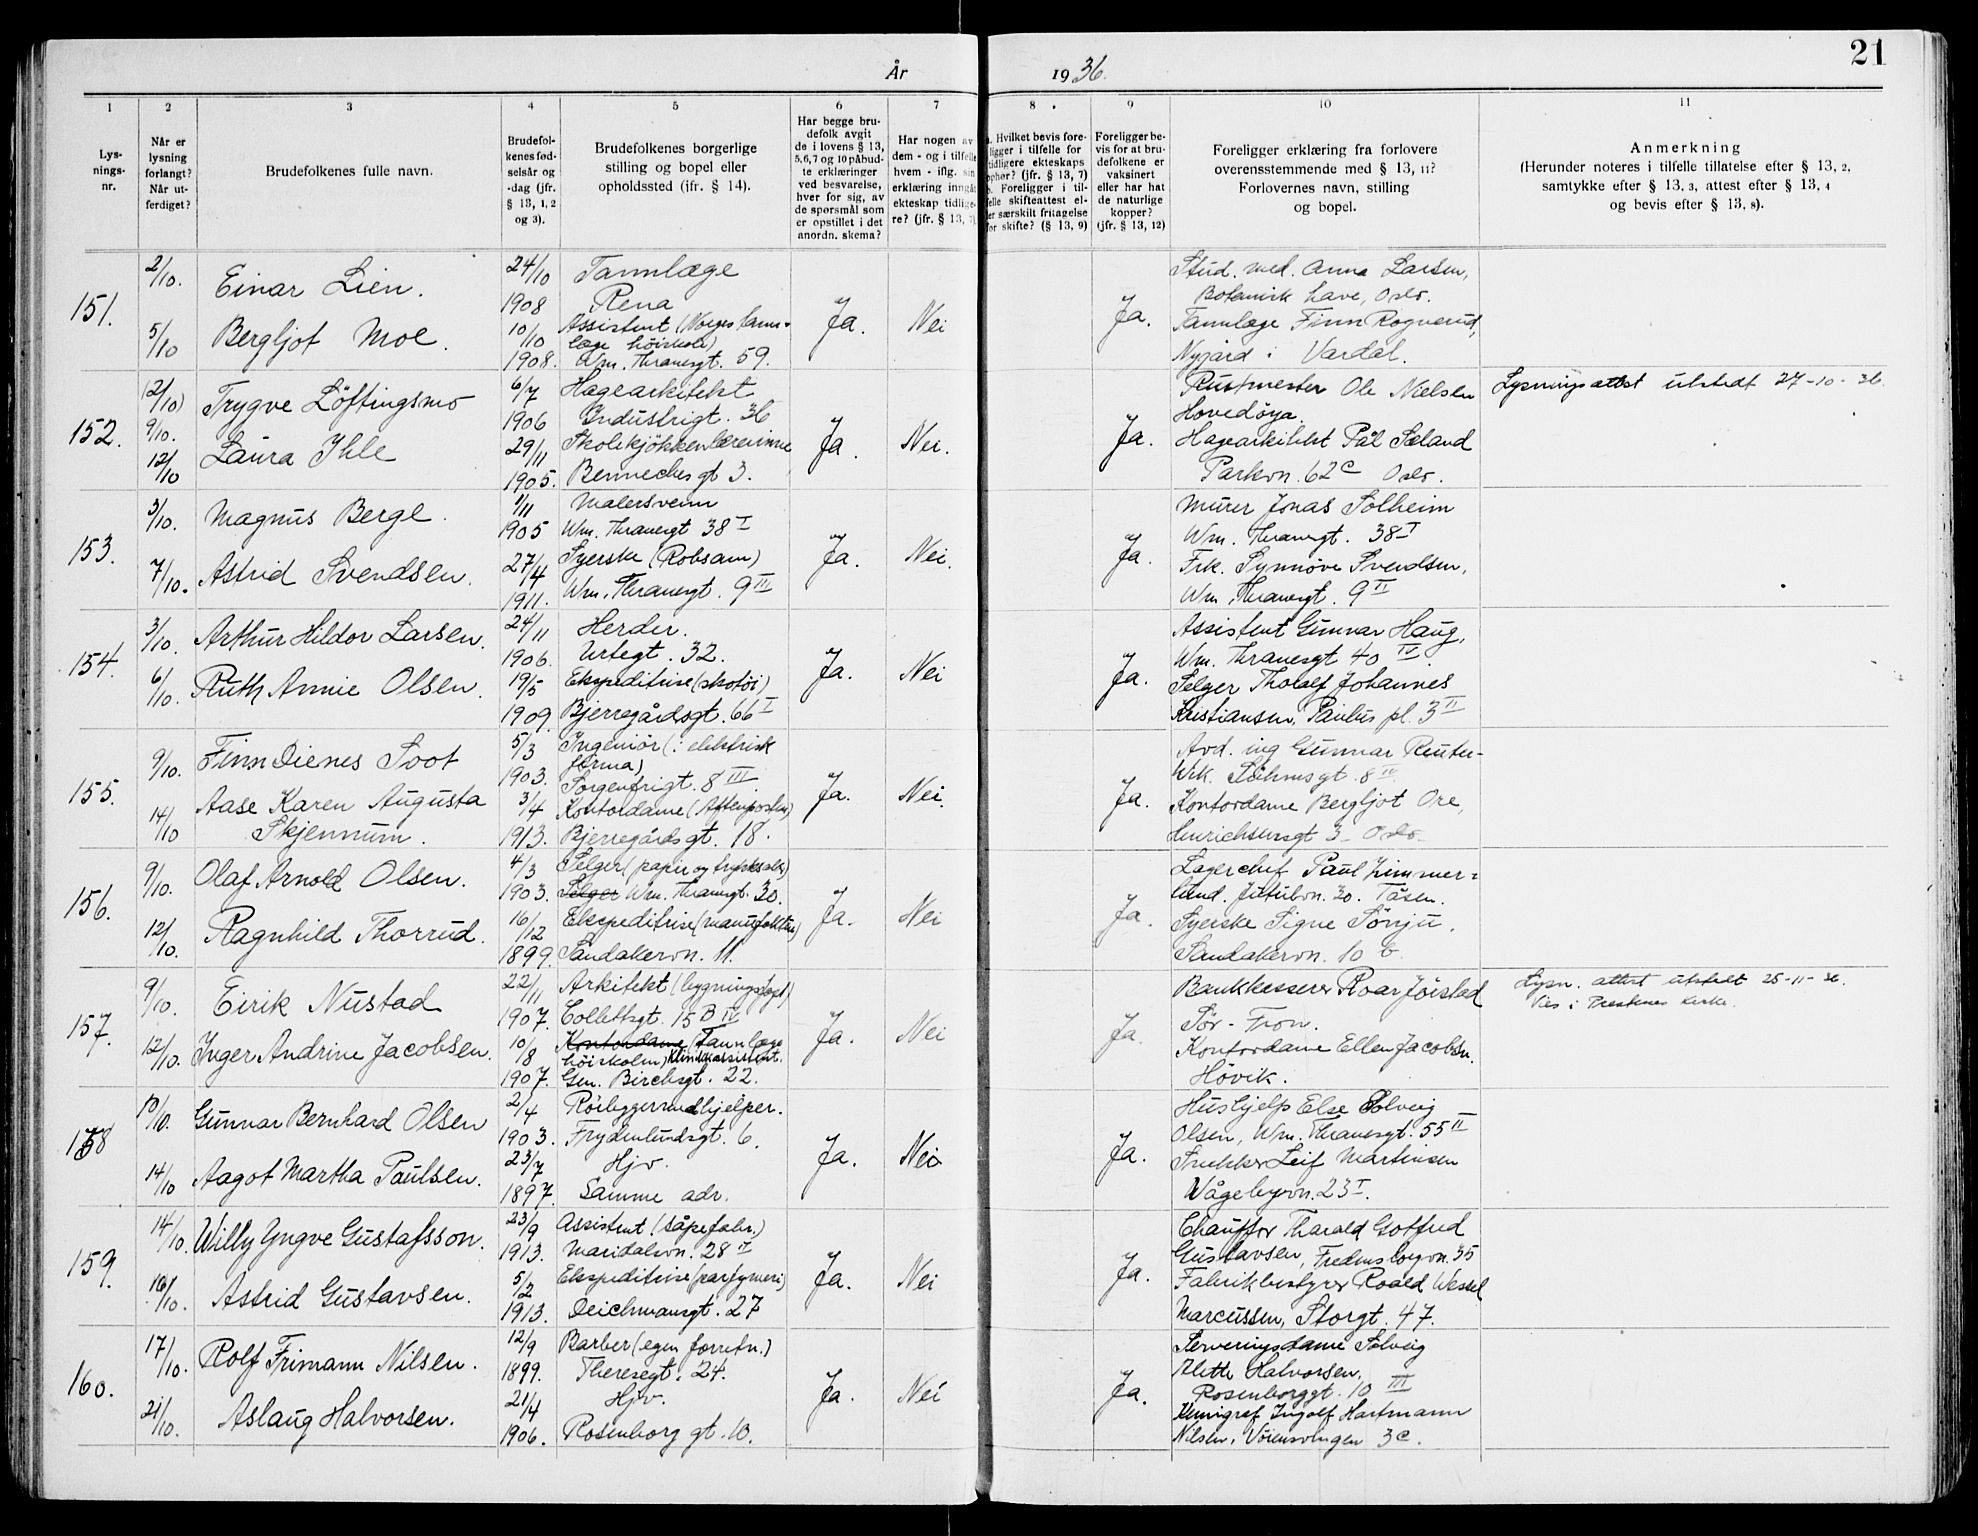 21
År 1936.
1 2 3 4 5 6 7 8 9 10 11
Lys-
nings-
nr.
Når er
lysning
forlangt?
Når ut-
ferdiget?
Brudefolkenes fulle navn.
Brudefol-
kenes fød-
selsår og
-dag (jfr.
§ 13, 1, 2
og 3).
Brudefolkenes borgerlige
stilling og bopel eller
opholdssted (jfr. § 14).
Har begge bru-
defolk avgit
de i lovens § 13,
5,6,7 og 10 påbud-
te erklæringer
ved besvarelse,
hver for sig, av
de spørsmål som
er opstillet i det
anordn. skema?
Har nogen av
dem - og i tilfelle
hvem - iflg. sin
erklæring inngåt
ekteskap tidlige-
re? (jfr. § 13, 7)
a. Hvilket bevis fore-
ligger i tilfelle for
tidligere ekteskaps
ophør? (jfr. § 13, 7)
b. Foreligger i til-
felle skifteattest el-
ler særskilt fritagelse
for skifte? (§ 13, 9)
Foreligger be-
vis for at bru-
defolkene er
vaksinert
eller har hat
de naturlige
kopper?
(jfr. § 13, 12)
Foreligger erklæring fra forlovere
overensstemmende med § 13, 11?
Forlovernes navn, stilling
og bopel.
Anmerkning
(Herunder noteres i tilfelle tillatelse efter § 13, 2,
samtykke efter § 13, 3, attest efter § 13, 4
og bevis efter § 13, 8).
151.
2/10.
5/10
Einar Lien.
Bergljot Moe.
24/10
1908
10/10
1908.
Tannlæge
Rena
Assistent (Norges tann-
læge høiskole)
Wm. Thranesgt. 59.
Ja.
Nei
Ja.
Stud. med. Anna Larsen,
Botanisk have, Oslo.
Tannlæge Finn Rognerud,
Nygård i Vardal.
152.
(2/10)
9/10.
12/10
Trygve Löftingsmo
Laura Ihle
6/7
1906
29/11
1905.
Hagearkitekt
Industrigt. 36
Skolekjøkkenlærerinne
Bennechesgt 3.
Ja.
Nei.
Ja.
Rustmester Ole Nielsen
Hovedøya
Hagearkitekt Pål Sæland
Parkvn. 62c Oslo.
Lysningsattest utstedt 27-10-36.
153.
3/10.
7/10.
Magnus Berge.
Astrid Svendsen.
1/11
1905
27/4
1911.
Malersvenn
Wm. Thranesgt 38 I
Syerske (Robsam)
Wm. Thranesgt. 9 III
Ja.
Nei.
Ja.
Murer Jonas Solheim
Wm. Thranesgt. 38 I
Frk. Synnöve Svendsen,
Wm. Thranesgt. 9 II
154.
3/10.
6/10.
Arthur Hildor Larsen.
Ruth Annie Olsen.
24/11
1906.
19/5
1909.
Herder.
Urtegt. 32.
Ekspeditrise (skotøi)
Bjerregårdsgt. 66 I
Ja.
Nei
Ja.
Assistent Gunnar Haug,
Wm. Thranesgt 40 IV.
Selger Tholalf Johannes
Kristiansen, Paulus pl. 3 II
155.
9/10.
14/10
Finn Dienes Soot
Aase Karen Augusta
Skjennum.
5/3
1903.
3/4
1913.
Ingeniør (: elektrisk
firma)
Sorgenfrigt. 8 III.
Kontordame (Aftenposten)
Bjerregårdsgt. 18.
Ja.
Nei.
Ja.
Avd. ing Gunnar Reuter-
8 IV.
Kontordame Bergljot Ore,
Henrichsensgt 3 Oslo
156.
9/10.
12/10.
Olaf Arnold Olsen.
Ragnhild Thorrud.
4/3
1903.
16/12
1899.
Selger (papir og trykksaker)
Selger Wm. Thranesgt. 30.
Ekspeditrise (manufaktur)
Sandakervn. 11.
Ja.
Nei
Ja.
Lagerchef Paul Zimmer-
lund. 30. Tåsen.
Syerske Signe Sönju,
Sandakervn. 10 b.
157.
9/10.
12/10.
Eirik Nustad
Inger Andrine Jacobsen.
22/11
1907.
10/8
1907.
Arkitekt (bygningsfagt)
Collettsgt. 15 B IV
Kontordame (Tannlæge
høiskolen) Klinikkassistent.
Gen. Birchsgt. 22.
Ja.
Nei
Ja.
Bankkasserer Roar Jöistad
Sör-Fron.
Kontordame Ellen Jacobsen.
Hövik.
Lysn. attest utstedt 25-11-36.
Vies i Prestenes kirke.
158
10/10.
14/10
Gunnar Bernhard Olsen
Aagot Martha Paulsen.
2/4
1903.
23/7
1897.
Rörleggermedhjelper.
Frydenlundsgt. 6.
Hjv.
Samme adr.
Ja.
Nei
Ja.
Hushjelp Else Solveig
Olsen, Wm. Thranesgt. 55 II
Snekker Leif Martinsen
Vågebyvn. 23 I.
159.
14/10.
16/10.
Willy Yngve Gustafsson.
Astrid Gustavsen.
23/9
1913.
5/2
1913.
Assistent (såpefabr.)
Maridalsvn. 28 II
Ekspeditrise (parfymeri)
Deichmansgt. 27
Ja.
Nei
Ja.
Chauffør Tharald Gotfred
Gustavsen, Fredensborgvn. 35
Fabrikkbestyrer Roald Wessel
Marcussen, Storgt. 47.
160.
17/10.
21/10.
Rolf Frimann Nilsen.
Aslaug Halvorsen.
12/9
1899.
21/4
1906.
Barber (egen forretn.)
Theresegt. 24.
Hjv.
Rosenborg gt. 10.
Ja.
Nei
Ja.
Serveringsdame Solveig
Alette Halvorsen,
Rosenborggt. 10 III
Kemigraf Ingolf Hartmann
Nilsen, Vöiensvingen 3c.